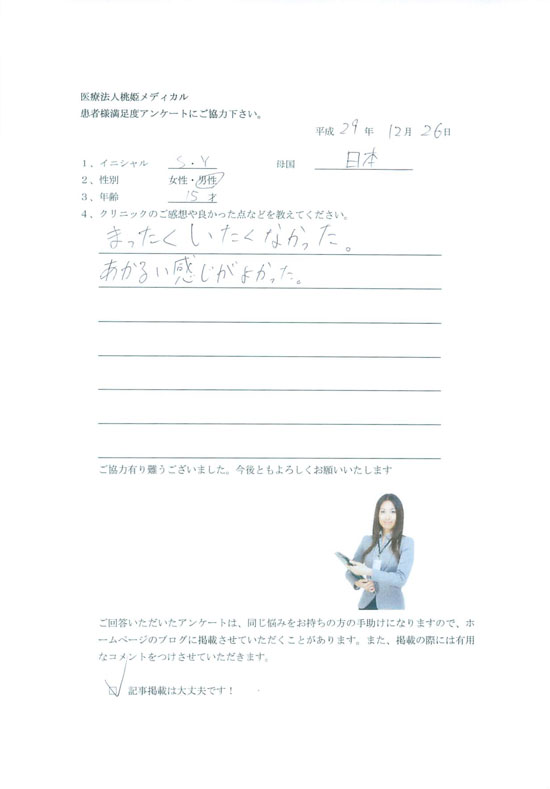 医療法人桃姫メディカル
患者様満足度アンケートにご協力下さい。
平成 29 年 12月 26日
1、イニシャル S・Y 母国 日本
2、性別 女性・男性
3、年齢 15才
4、クリニックのご感想や良かった点などを教えてください。
まったくいたくなかった。
あかるい感じがよかった。
ご協力有り難うございました。今後ともよろしくお願いいたします
ご回答いただいたアンケートは、同じ悩みをお持ちの方の手助けになりますので、ホ
ームページのブログに掲載させていただくことがあります。また、掲載の際には有用
なコメントをつけさせていただきます。
☑ 記事掲載は大丈夫です！